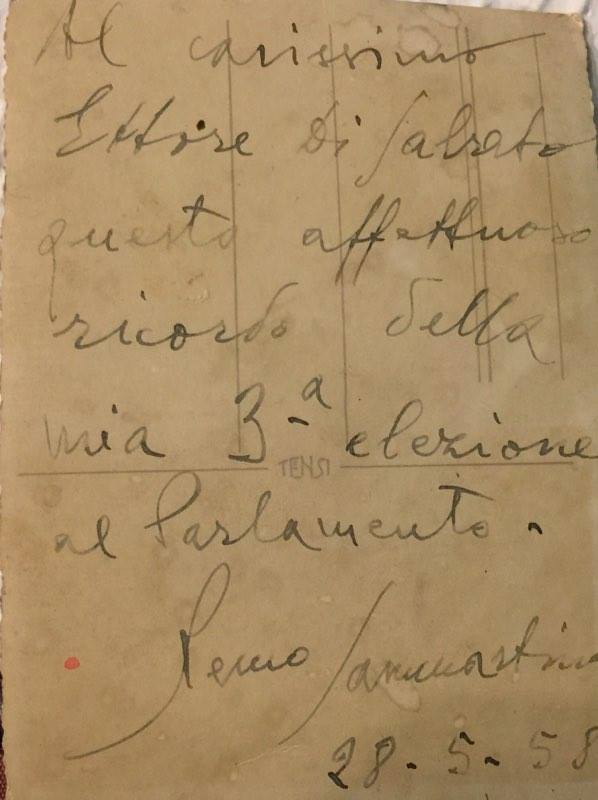 Al carissimo
Ettore Di Salvato
questo affettuoso
ricordo della
mia 3-a elezione
TENSI
al Parlamento -
Remo Sammartino
28-5-58